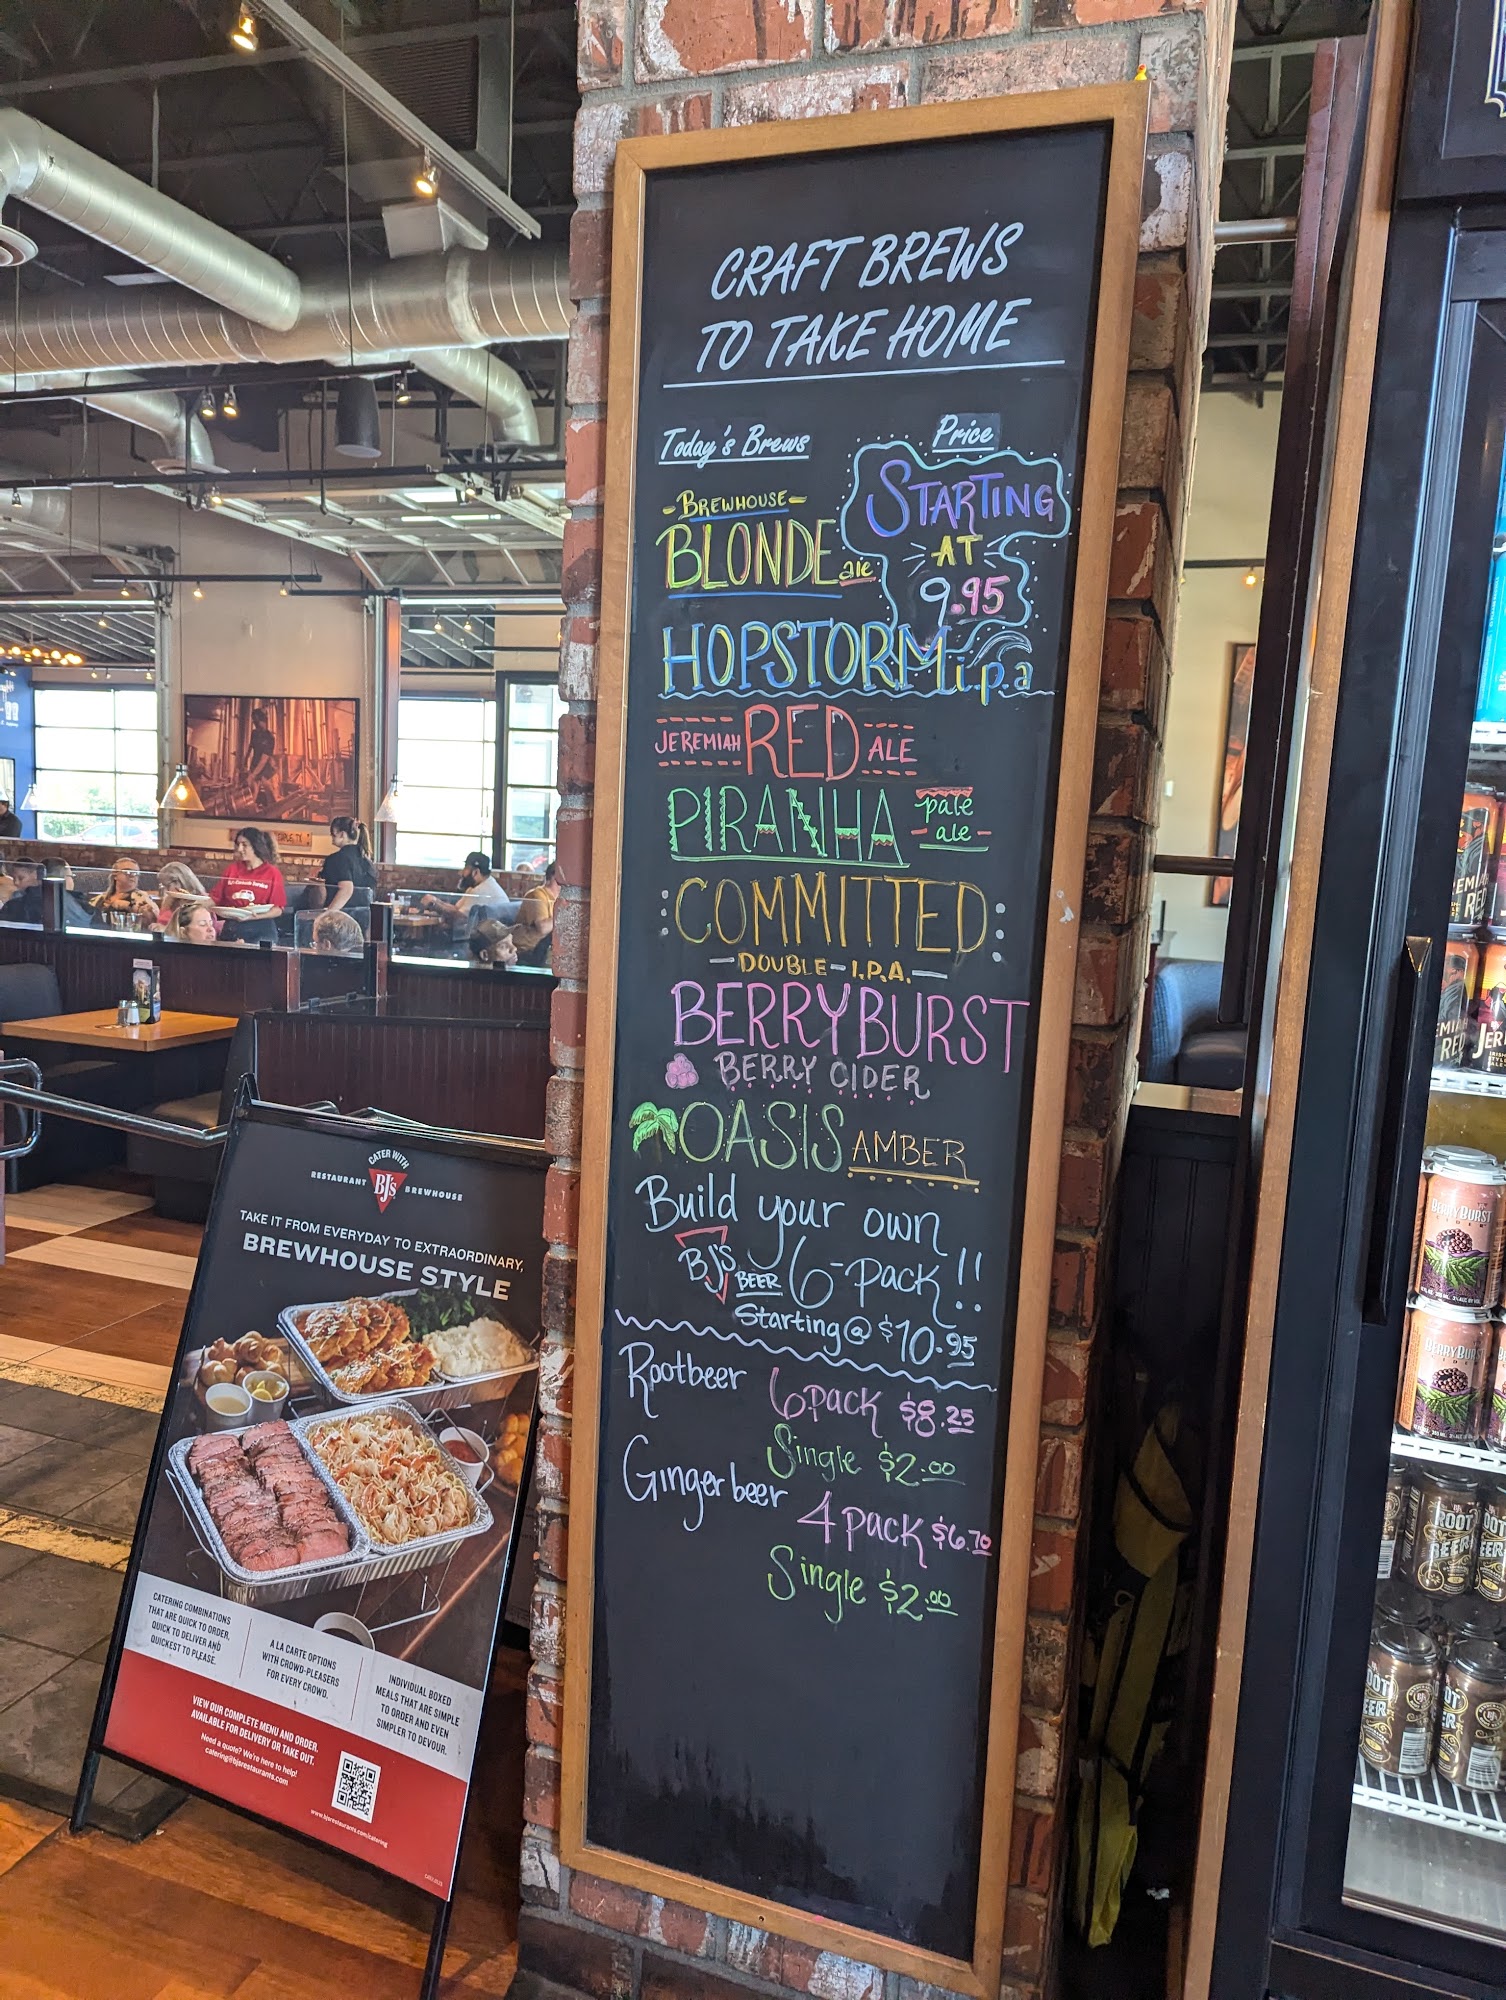 CRAFT BREWS
TO TAKE HOME
Today's Brews
Price
STARTING
AT
9.95
-BREWHOUSE-
BLONDE ale
HOPSTORM i.p.a
JEREMIAH RED ALE
PIRANHA pale
- ale -
COMMITTED
-DOUBLE-I.P.A.-
BERRYBURST
BERRY CIDER
OASIS AMBER
Build your own
BJ'S BEER 6-PACK!!
Starting @ $10.95
Rootbeer 6PACK $8.25
Single $2.00
Ginger beer 4PACK $6.70
Single $2.00
CATER WITH
RESTAURANT BJ's BREWHOUSE
TAKE IT FROM EVERYDAY TO EXTRAORDINARY,
BREWHOUSE STYLE
CATERING COMBINATIONS
THAT ARE QUICK TO ORDER,
QUICK TO DELIVER AND
QUICKEST TO PLEASE.
A LA CARTE OPTIONS
WITH CROWD-PLEASERS
FOR EVERY CROWD.
INDIVIDUAL BOXED
MEALS THAT ARE SIMPLE
TO ORDER AND EVEN
SIMPLER TO DEVOUR.
VIEW OUR COMPLETE MENU AND ORDER.
AVAILABLE FOR DELIVERY OR TAKE OUT.
Need a quote? We're here to help!
catering@bjsrestaurants.com
www.bjsrestaurants.com/catering
BERRYBURST
CIDER
BERRYBURST
CIDER
ROOT
BEER